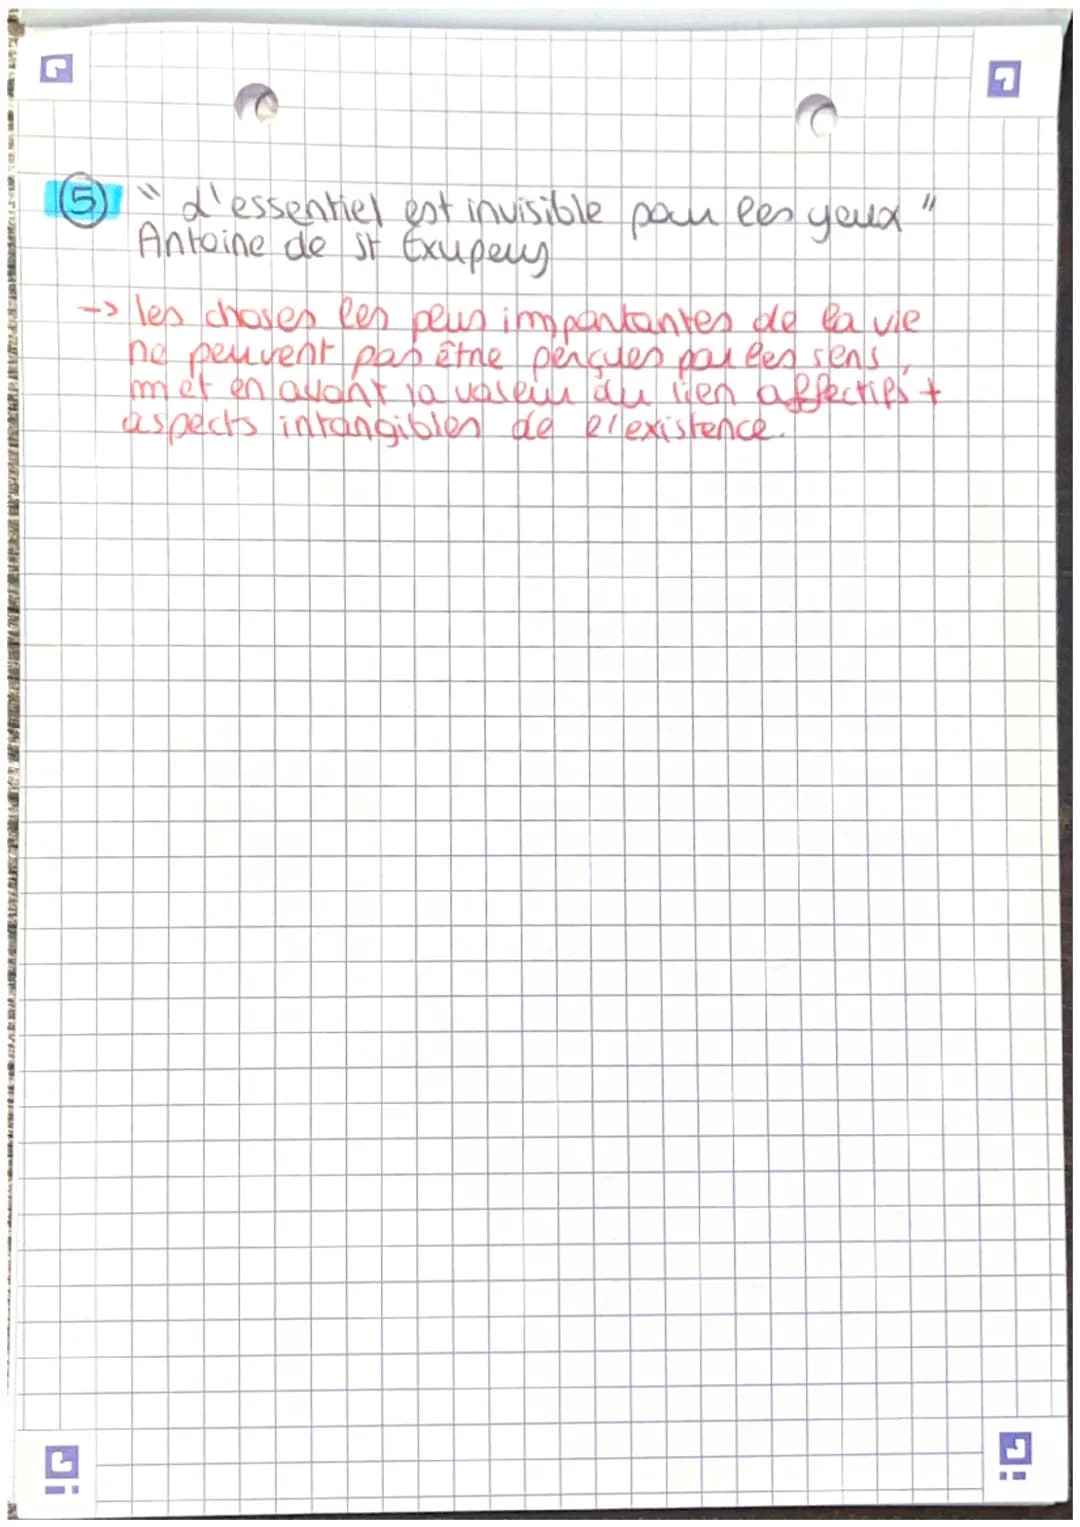 ⑤ "L'essentiel est invisible pour les yeux"
Antoine de St Exupery
-> les choses les plus importantes de la vie
ne peuvent pas être perçues par les sens,
met en avant la valeur du lien affectifs +
aspects intangibles de l'existence.